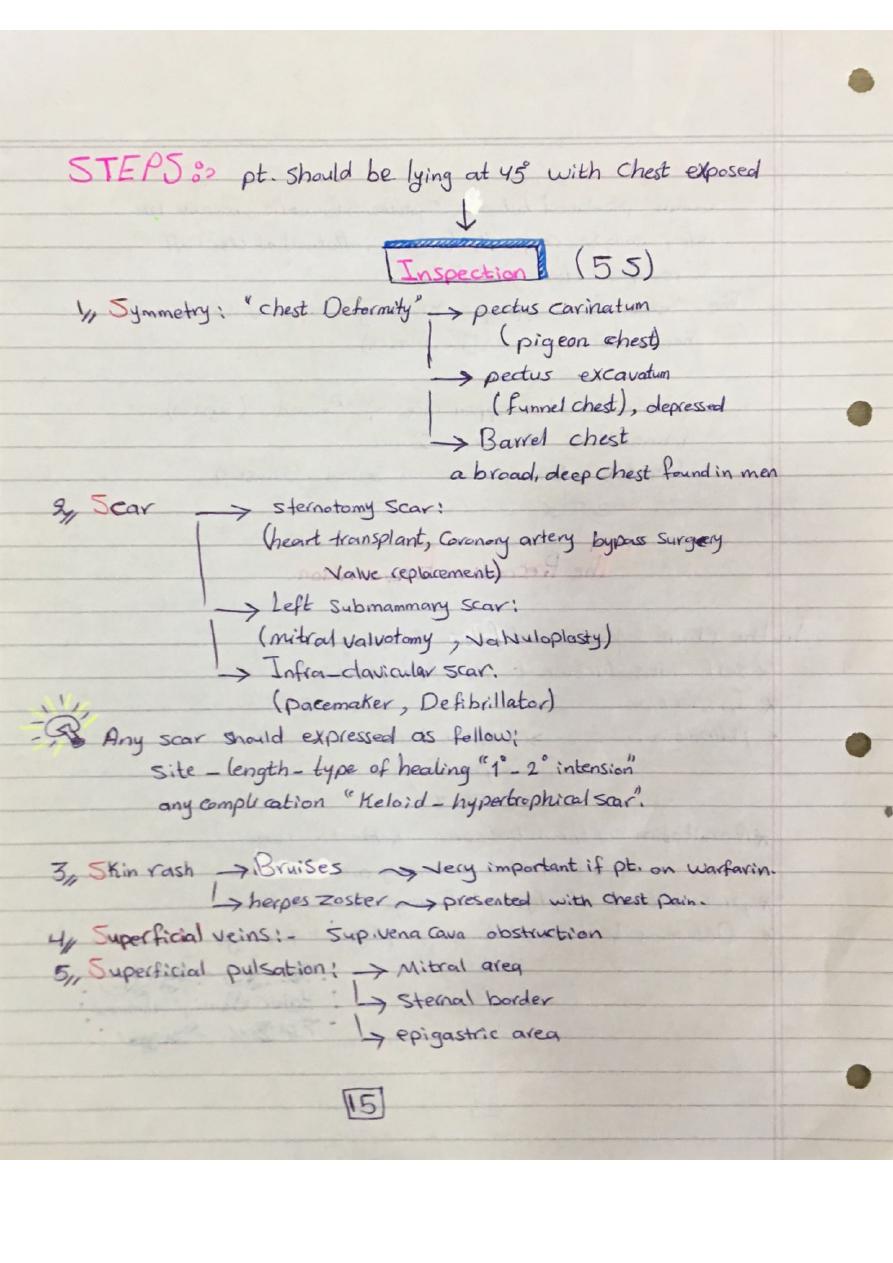 STEPS:> pt. should be lying at 45° with chest exposed
↓
Inspection (5 S)
1,, Symmetry: "chest Deformity" → pectus carinatum
(pigeon chest)
→ pectus excavatum
(funnel chest), depressed
→ Barrel chest
a broad, deep chest found in men
2,, Scar → sternotomy scar:
(heart transplant, Coronary artery bypass surgery
Valve replacement)
→ Left submammary scar:
(mitral valvotomy, valvuloplasty)
→ Infra-clavicular scar.
(pacemaker, Defibrillator)
Any scar should expressed as follow:
site - length - type of healing "1° - 2° intension"
any complication "Keloid - hypertrophical scar".
3,, Skin rash → Bruises ~→ very important if pt. on warfarin.
↳ herpes zoster ~→ presented with chest pain.
4,, Superficial veins:- Sup. vena cava obstruction
5,, Superficial pulsation: → Mitral area
↳ sternal border
↳ epigastric area
15